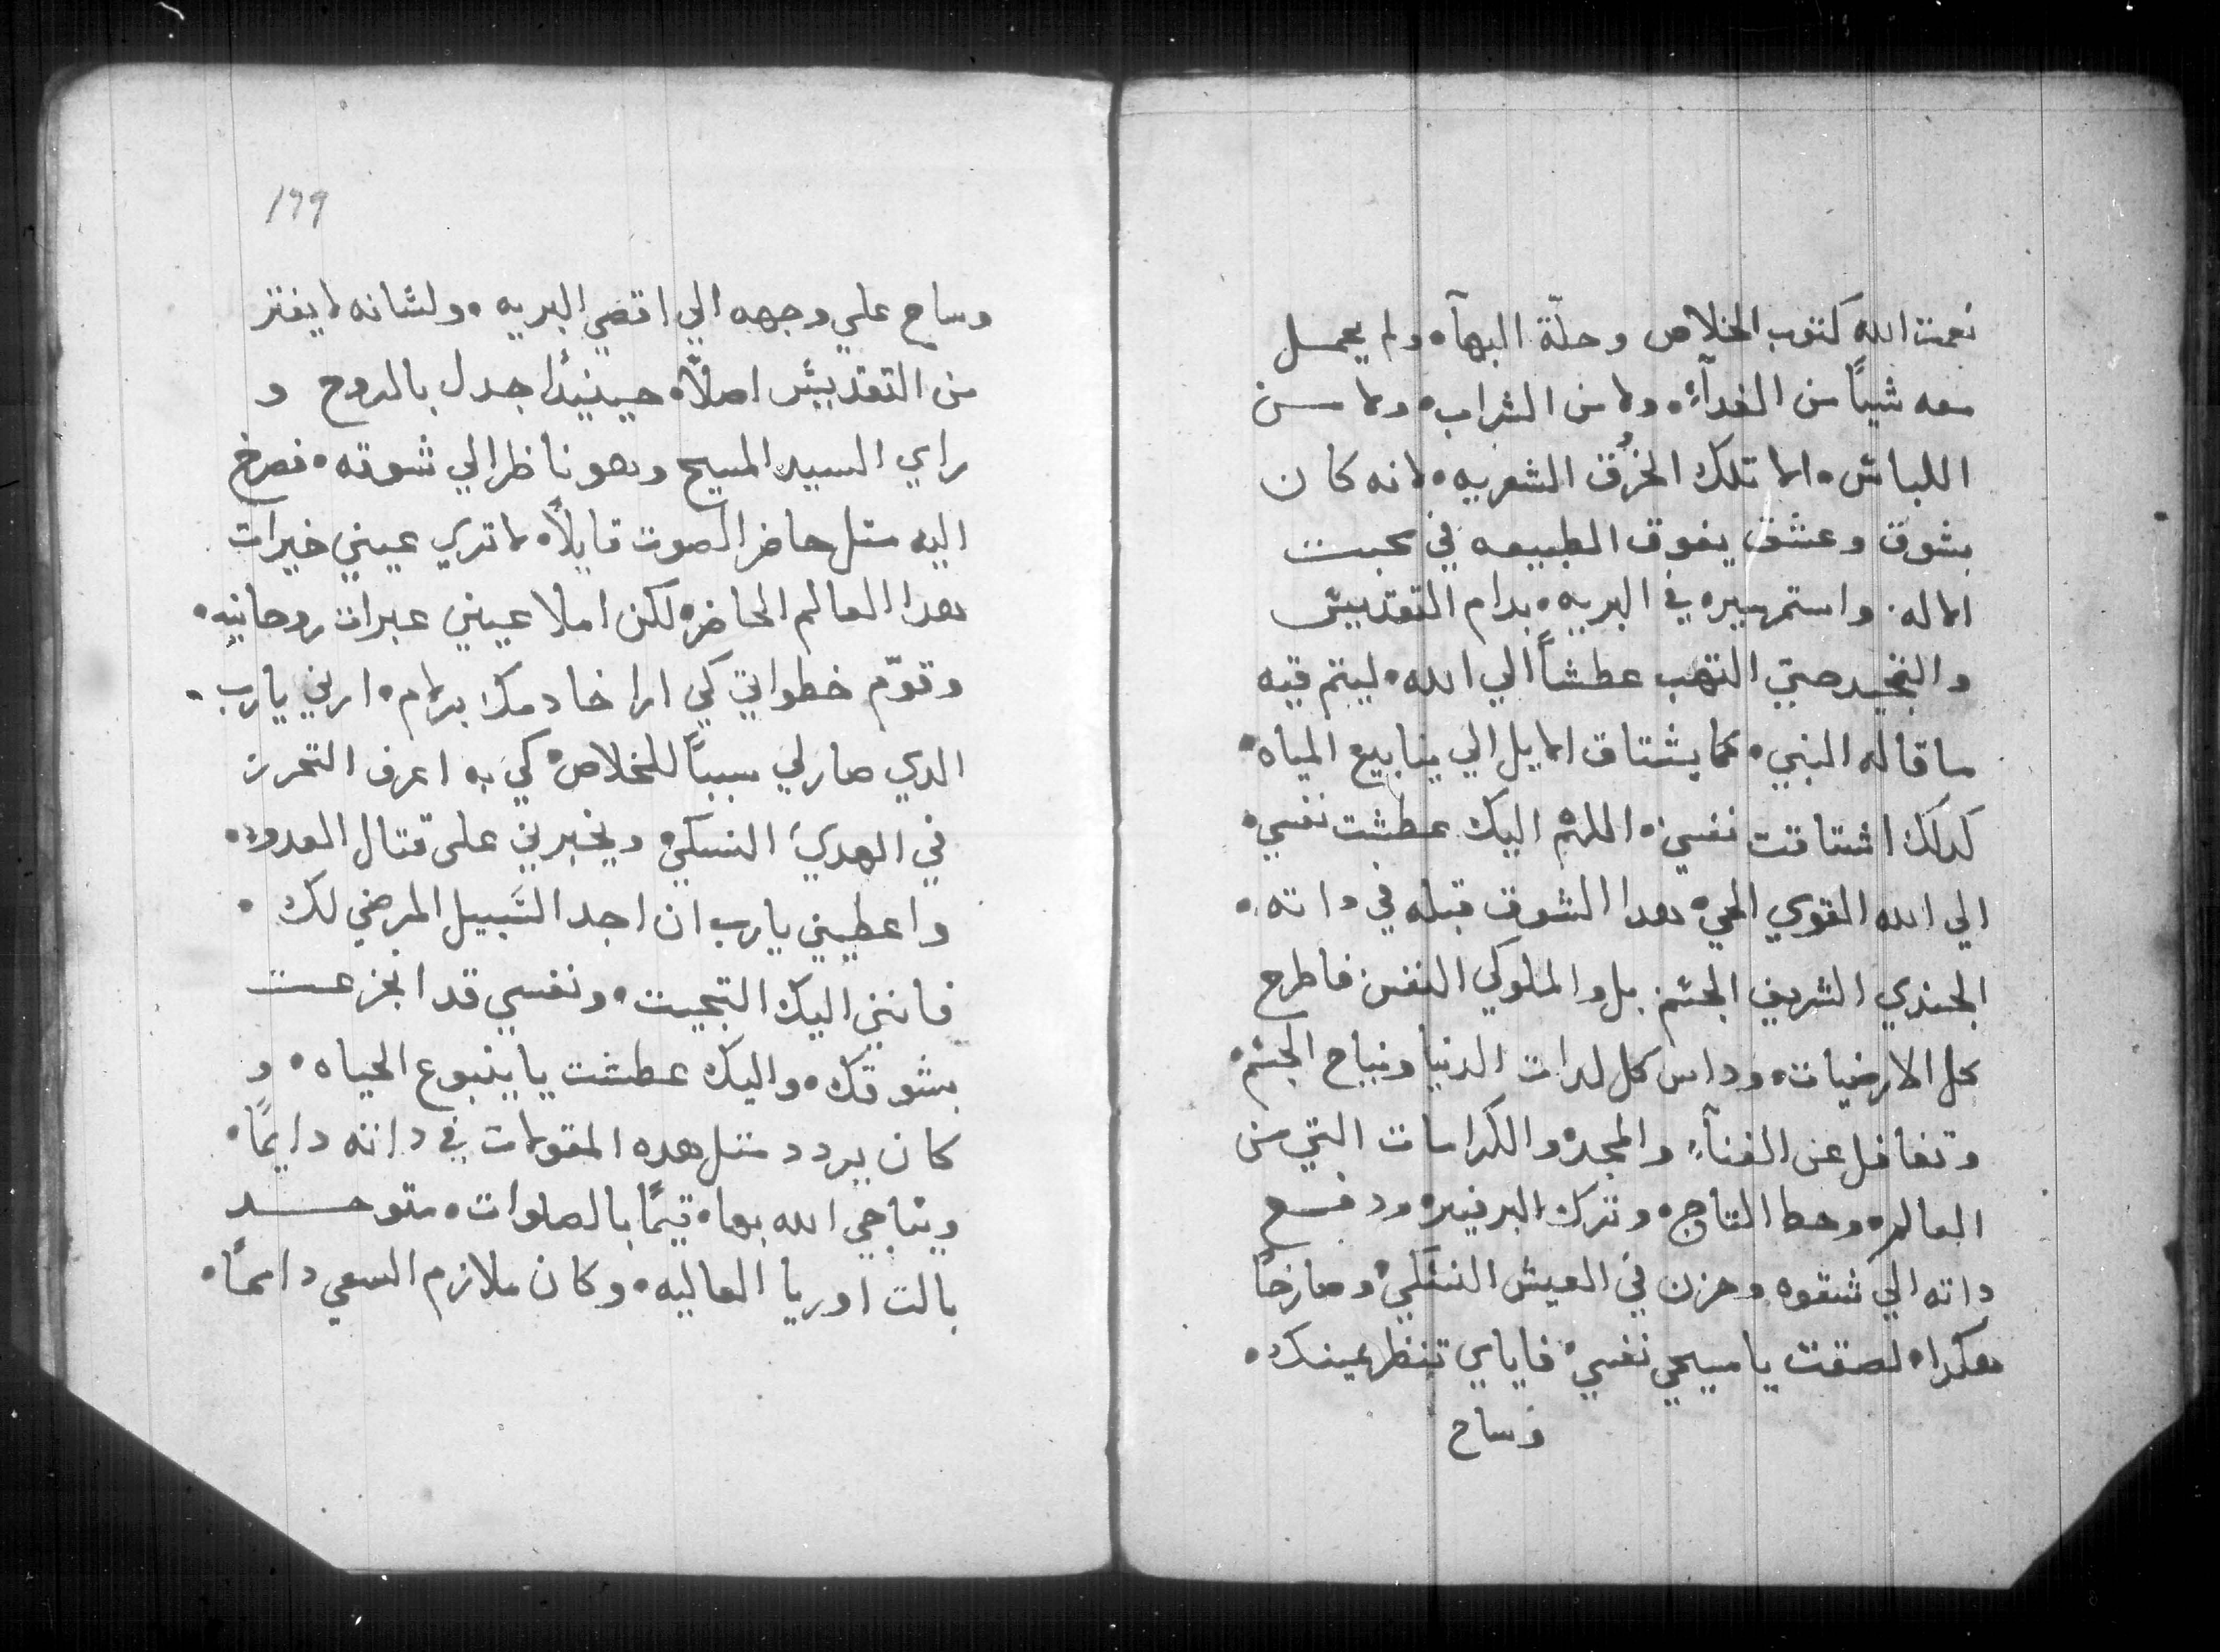 نعمت الله كتوب الخلاص وحلّة البهآه ولم يحمل
معه شيًا من الغدآءِ ولا من الشراب ولا من
اللباش الا تلك الخُرق الشعريه لانه كان
بشوق وعشق يفوق الطبيعه في محبت
الاله واستمر سيره في البريه بدام التقديش
والتجيد حتي التهب عطشاً الي الله ليتم فيه
ما قاله النبي كما يشتاق الايل الي ينابيع المياه
كدلك اشتاقت نفسي اللهم اليك عطشت نفسي
الي الله القوي الحي هدا الشوق قبله في داته
الجندي الشريف الجشم بل والملوكي النفس فاطرح
كل الارضيات وداس كل لدات الدنيا ونياح الجشم
وتغافل عن الغنآءِ والمجد والكرامات التي من
العالم وحط التاج وترك البرفير ودفع
داته الي شقوه وحزن في العيش النشكي وصارخاً
هكدا لصقت يا مسيحي نفسي فاياي تنظر عينك
وساح
١٩٩
وساح علي وجهه الي اقصي البريه ولشانه لا يفتر
من التقديش اصلاً حينيدًا جدل بالروح و
راي السيد المسيح وهو ناظر الي شوقه فصرخ
اليه متل حاضر الصوت قايلاً لا تري عيني خيرات
هدا العالم الحاضر لكن املا عيني عبرات روحانيه
وقوّم خطواتي كي ارا خادمك برلام ارني يارب
الدي صار لي سبباً للخلاص كي به اعرف التحرز
في الهدي النسكي ويخبرني علي قتال العدو
واعطيني يارب ان اجد السَبيل المرضي لك
فانني اليك التجيت ونفسي قد انجزعت
بشوقك واليك عطشت يا ينبوع الحياه و
كان يردد متل هده المقولات في داته دايمًا
ويناجي الله بها قيمًا بالصلوات متوحد
بالت اوريا العاليه وكان ملازم السعي دايمًا